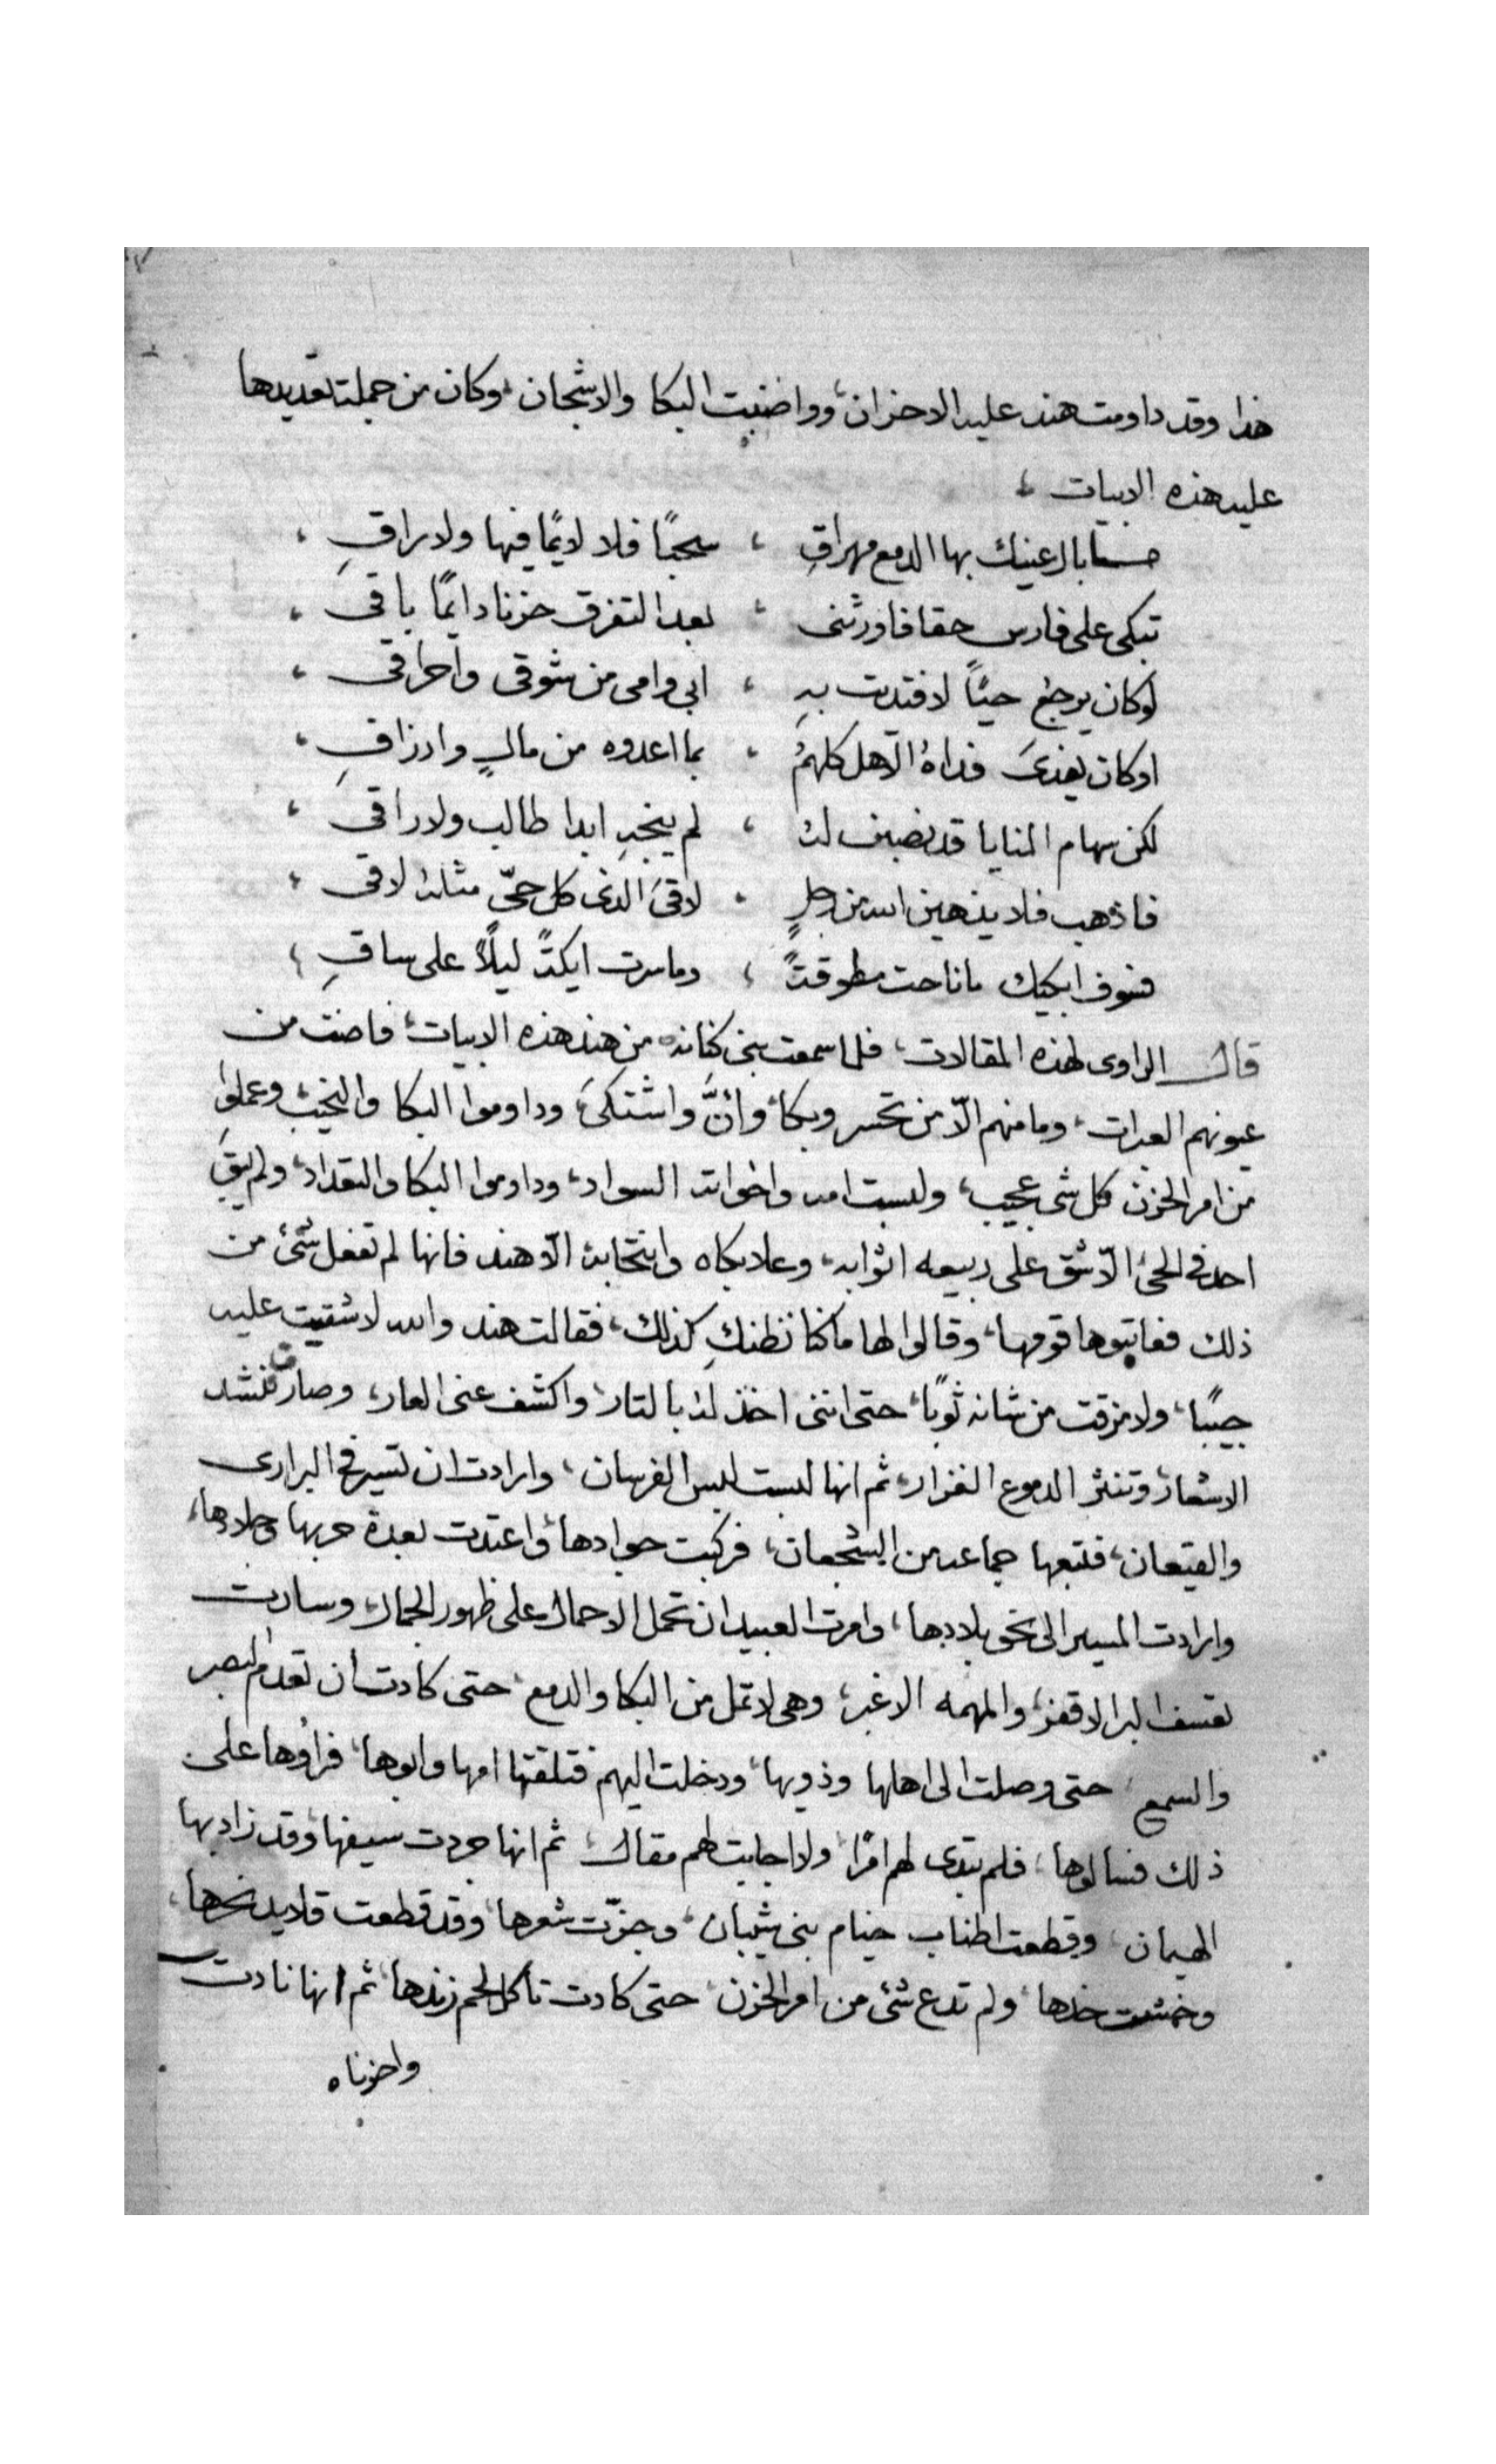 هذا وقد داومت هند عليه الاحزان، وواضبت البكا والاشجان، وكان من جملة تعديدها
عليه هذه الابيات،
ما بال عينك بها الدمع مهراقِ ، سحبًا فلا لايمًا فيها ولا راقِ ،
تبكى على فارس حقا فاورثنى ، بعد التفرق حزنا دايمًا باقى ،
لوكان يرجع حيًا لافتديت بهِ ، ابى وامى من شوقى واحراقى ،
اوكان يفدىَ فداهُ الاهل كلهمُ ، بما اعدوه من مالٍ وارزاقِ ،
لكن سهام المنايا قد نصبن له ، لم ينجهِ ابدا طالب ولا راقى ،
فاذهب فلا يذهبن الله من رجلٍ ، لاقىَ الذى كل حىّ مثله لاقى ،
فسوف ابكيك ما ناحت مطوقتًا ، وما سرت ايكةً ليلًا على ساقِ ،
قال الراوى لهذه المقالات، فلما سمعت بنى كنانه من هند هذه الابيات، فاضت من
عيونهم العبرات، وما منهم الّا من تحسر وبكا، وأنَّ واشتكىَ، وداوموا البكا والنحيب، وعملوا
من امر الحزن كل شى عجيب، ولبست امه واخواته السواد، وداوموا البكا والتعداد، ولم يبقَ
احد فى الحى الّا شق على ربيعه اثوابه، وعلا بكاه وانتحابه الّا هند فانها لم تفعل شئ من
ذلك فعاتبوها قومها، وقالوا لها ما كنا نظنكِ كذلك، فقالت هند والله لا شقيت عليه
جيبًا، ولا مزقت من شانه ثوبًا، حتى اننى اخذ له بالتار، واكشف عنى العار، وصارت تنشد
الاشعار، وتنثر الدموع الغزار، ثم انها لبست لبس الفرسان، وارادت ان تسير فى البرارى
والقيعان، فتبعها جماعه من الشجعان، فركبت جوادها، واعتدت بعدة حربها وجلادها،
وارادت المسير الى نحو بلادها، وامرت العبيد ان تحمل الاحمال على ظهور الجمال، وسارت
تعتسف البر الاقفر، والمهمه الاغبر، وهى لا تمل من البكا والدمع، حتى كادت ان تعدم البصر
والسمع، حتى وصلت الى اهلها وذويها، ودخلت اليهم فتلقتها امها وابوها، فراؤها على
ذلك فسالوها، فلم تبدى لهم امرًا، ولا اجابت لهم مقال، ثم انها جردت سيفها، وقد زاد بها
الهيمان، وقطعت اطناب خيام بنى شيبان، وجزّت شعرها، وقد قطعت قلايد نحرها،
وخمشت خدها، ولم تدع شئ من امر الحزن، حتى كادت تاكل لحم زندها، ثم انها نادت
واحزناه